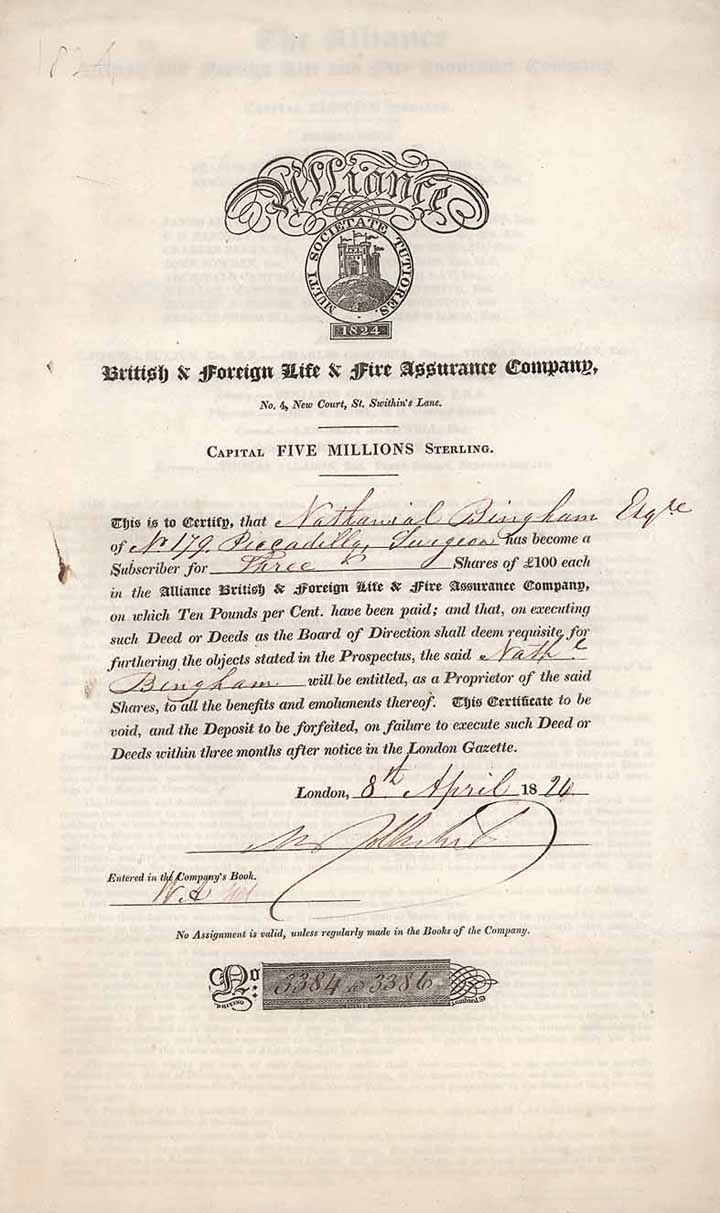 1824
Alliance
MULTI SOCIETATE TUTIORES.
1824
British & Foreign Life & Fire Assurance Company,
No. 4, New Court, St. Swithin's Lane.
CAPITAL FIVE MILLIONS STERLING.
This is to Certify, that Nathanial Bingham Esqre
of No 179 Piccadilly, Surgeon has become a
Subscriber for Three Shares of £100 each
in the Alliance British & Foreign Life & Fire Assurance Company,
on which Ten Pounds per Cent. have been paid; and that, on executing
such Deed or Deeds as the Board of Direction shall deem requisite for
furthering the objects stated in the Prospectus, the said Nathl
Bingham will be entitled, as a Proprietor of the said
Shares, to all the benefits and emoluments thereof. This Certificate to be
void, and the Deposit to be forfeited, on failure to execute such Deed or
Deeds within three months after notice in the London Gazette.
London, 8th April 1824
Entered in the Company's Book.
W. A
No Assignment is valid, unless regularly made in the Books of the Company.
No: 3384 a 3386